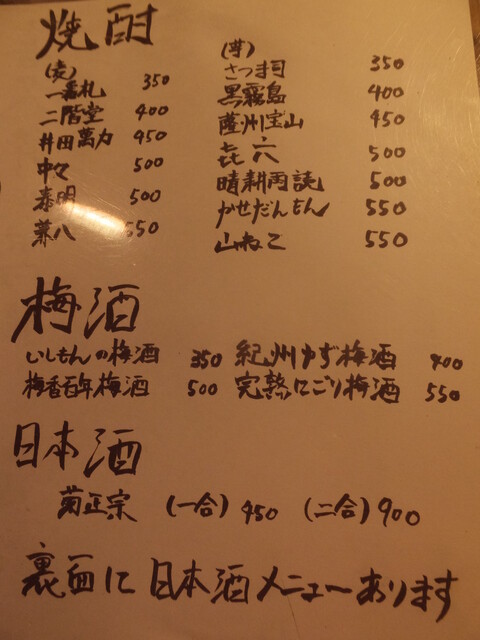 焼酎
(麦)
一番札 350
二階堂 400
井田萬力 450
中々 500
泰明 500
兼八 550
(芋)
さつま司 350
黒霧島 400
薩州宝山 450
㐂六 500
晴耕雨読 500
かせだんもん 550
山ねこ 550
梅酒
いしもんの梅酒 350 紀州ゆず梅酒 400
梅香百年梅酒 500 完熟にごり梅酒 550
日本酒
菊正宗 (一合) 450 (二合) 900
裏面に日本酒メニューあります